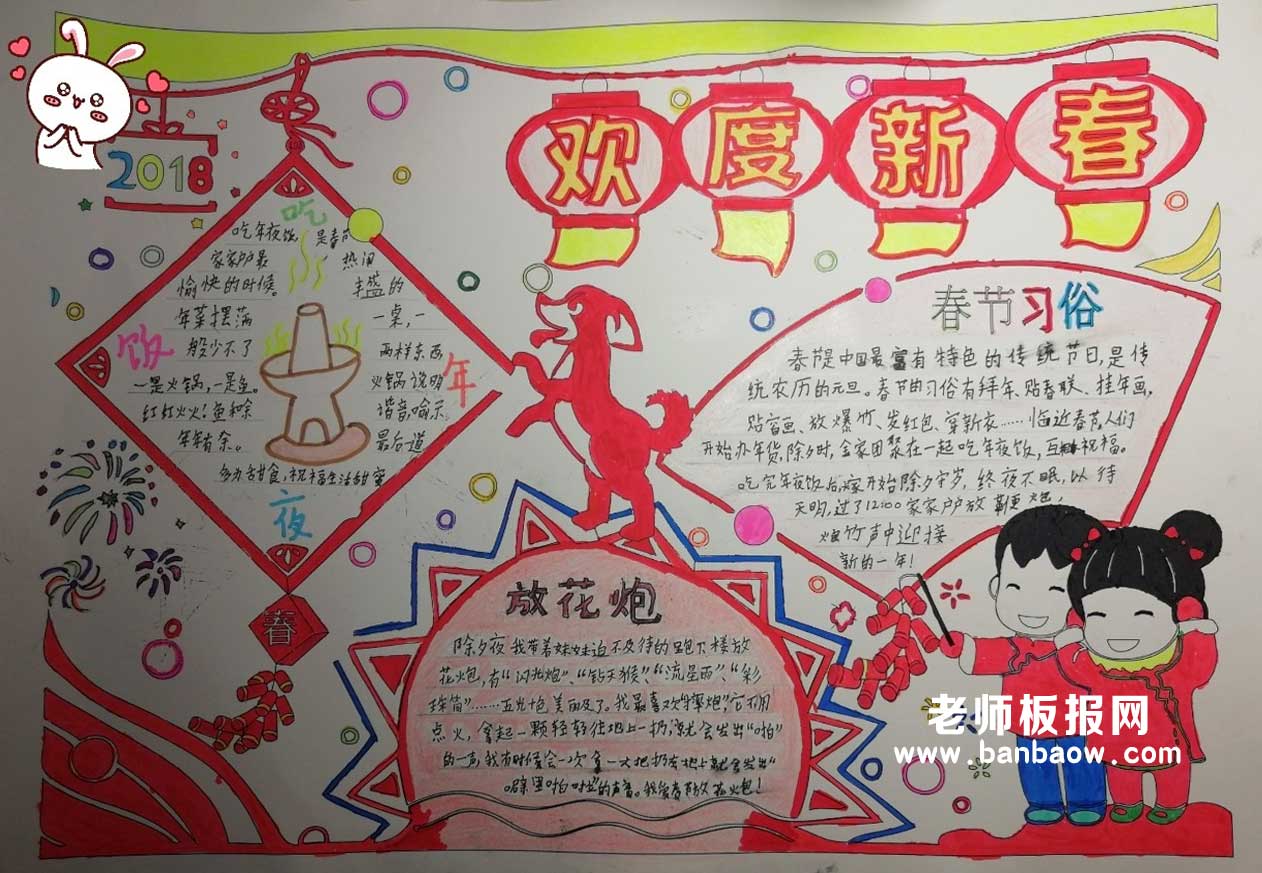 欢度新春
2018
吃年夜饭
吃年夜饭,是春节
家家户户最热闹
愉快的时候。丰盛的
年菜摆满一桌,一
般少不了两样东西
一是火锅,一是鱼。火锅说明
红红火火!鱼和余谐音,喻示
年年有余。最后一道
多为甜食,祝福生活甜蜜
春
春节习俗
春节是中国最富有特色的传统节日,是传
统农历的元旦。春节的习俗有拜年、贴春联、挂年画,
贴窗画、放爆竹、发红包、穿新衣……临近春节,人们
开始办年货,除夕时,全家团聚在一起吃年夜饭,互相祝福。
吃完年夜饭后,开始除夕守岁,终夜不眠,以待
天明,过了12:00家家户户放鞭炮,
炮竹声中迎接
新的一年!
放花炮
除夕夜我带着妹妹迫不及待的跑下楼放
花火炮,有“闪光炮”、“钻天猴”、“流星雨”、“彩
珠筒”……五光十色美丽极了。我最喜欢“摔炮”,它不用
点火,拿起一颗轻轻往地上一扔,就会发出“啪”
的一声,我有时候会一次拿一大把扔在地上就会发出“
噼里啪啦”的声音。我爱春节放花火炮!
老师板报网
www.banbaow.com